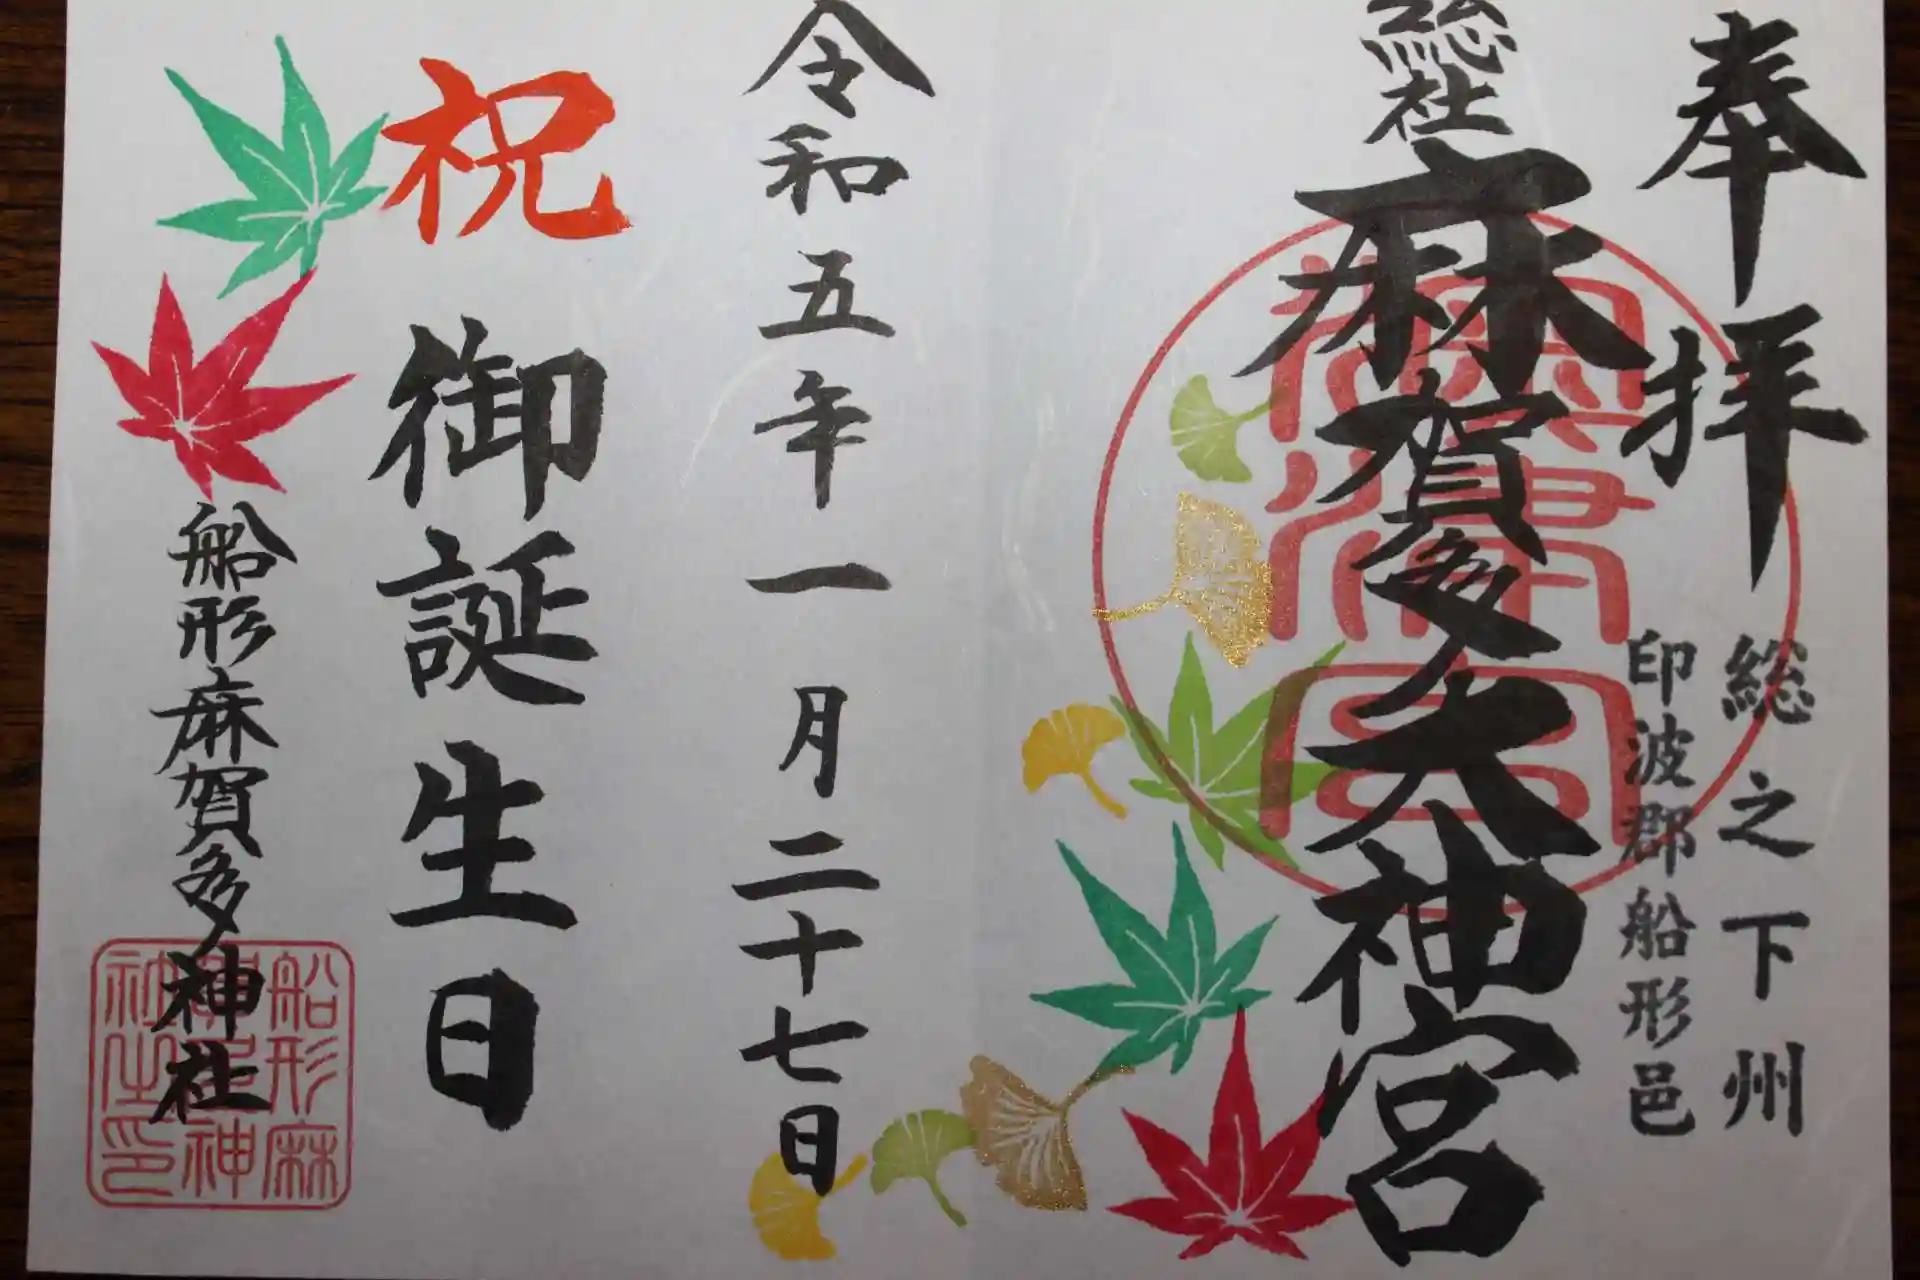 奉拝
総之下州
印波郡船形邑
総社
麻賀多大神宮
令和五年一月二十七日
祝
御誕生日
船形麻賀多神社
船形麻
神
社之印